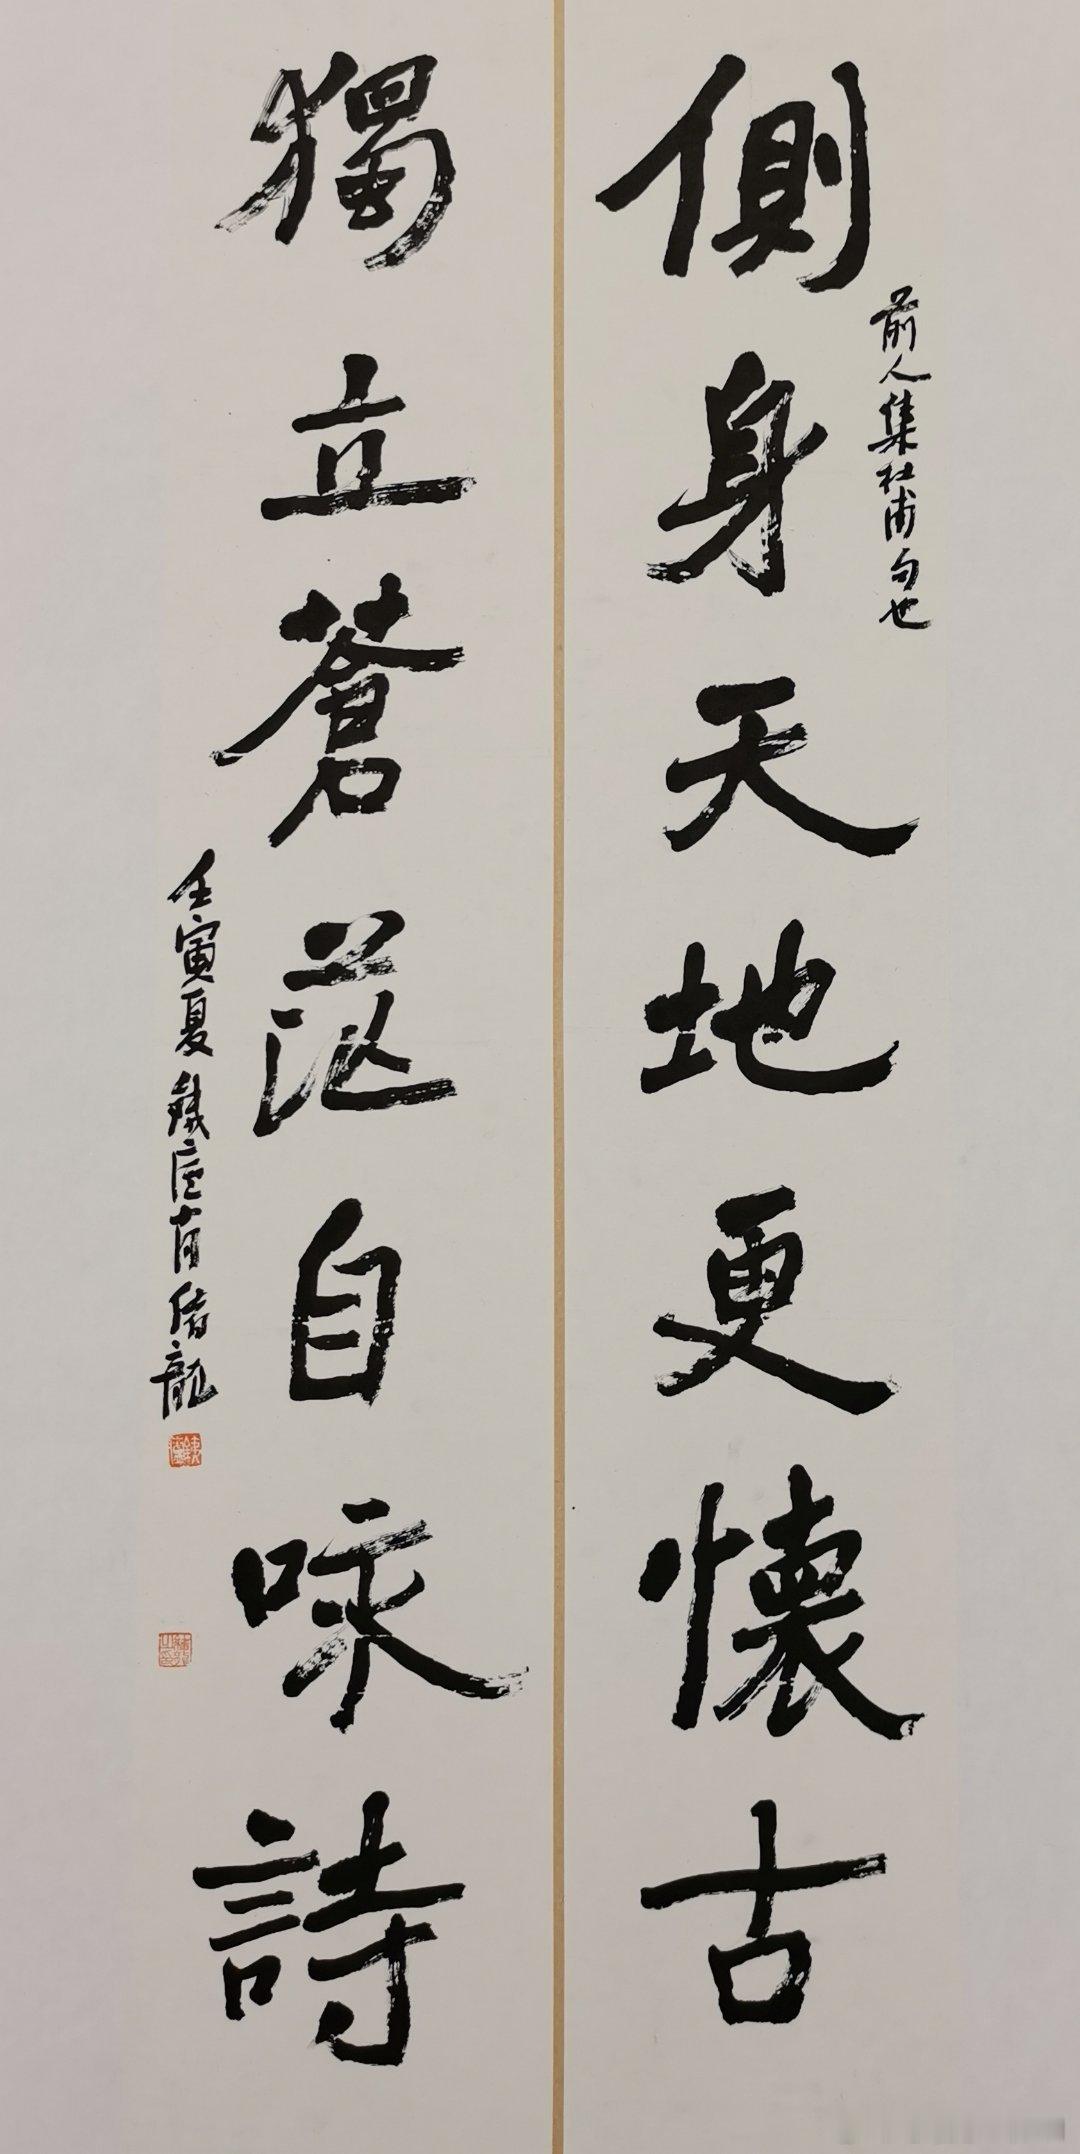 側身天地更懷古
前人集杜甫句也
獨立蒼茫自咏詩
壬寅夏